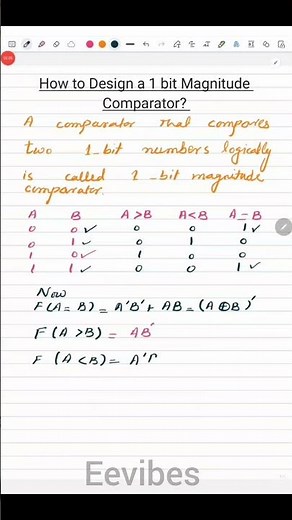 How to Design a 1 bit Magnitude
Comparator?
A comparator that compares
two 1_bit numbers logically
is called 1_bit magnitude
comparator.
A B A>B A<B A=B
0 0✓ 0 0 1✓
0 1✓ 0 1 0
1 0✓ 1 0 0
1 1✓ 0 0 1✓
Now
F(A=B) = A'B' + AB = (A⊕B)'
F(A>B) = AB'
F(A<B) = A'
Eevibes